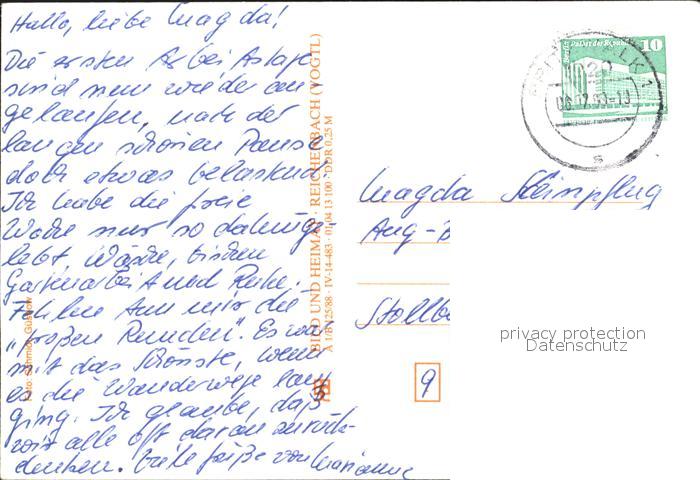 Hallo, liebe Magda!
Die ersten Arbeitstage
sind nun wieder an-
gelaufen, nach der
langen schönen Pause
doch etwas belastend.
Ich habe die freie
Woche nur so dahinge-
lebt. Wäsche, bissen
Gartenarbeit und Ruhe.
Fehlen tun mir die
„großen Runden“. Es war
mit das Schönste, wenn
es die Wanderwege lang
ging. Ich glaube, daß
wir alle oft daran zurück-
denken. Viele Grüße von Marianne
Foto: Schmidt, Güstrow
BILD UND HEIMAT · REICHENBACH (VOGTL)
A 1/B 125/88 · IV-14-483 · 01 04 13 100 · DDR 0,25 M
Berlin, Palast der Republik 10
Magda Steinpflug
Aug-B
Stollb
9
privacy protection
Datenschutz